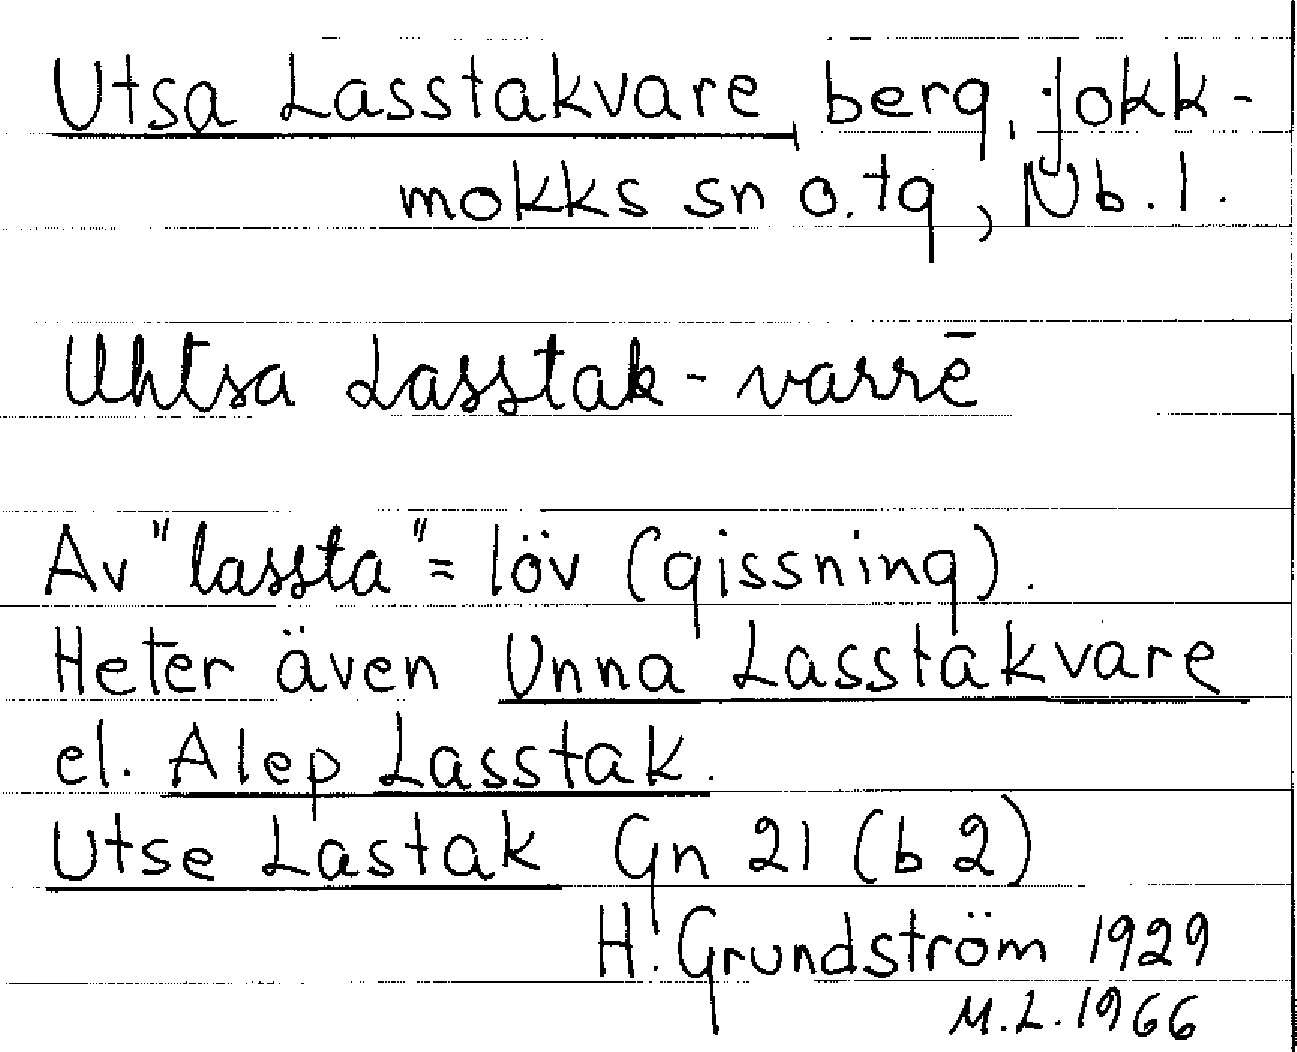 Utsa Lasstakvare, berg, Jokk-
mokks sn o. tg, Nb. l.
Uhtsa Lasstak-varrē
Av "lassta" = löv (gissning).
Heter även Unna Lasstakvare
el. Alep Lasstak.
Utse Lastak Gn 21 (b 2)
H. Grundström 1929
M.L. 1966